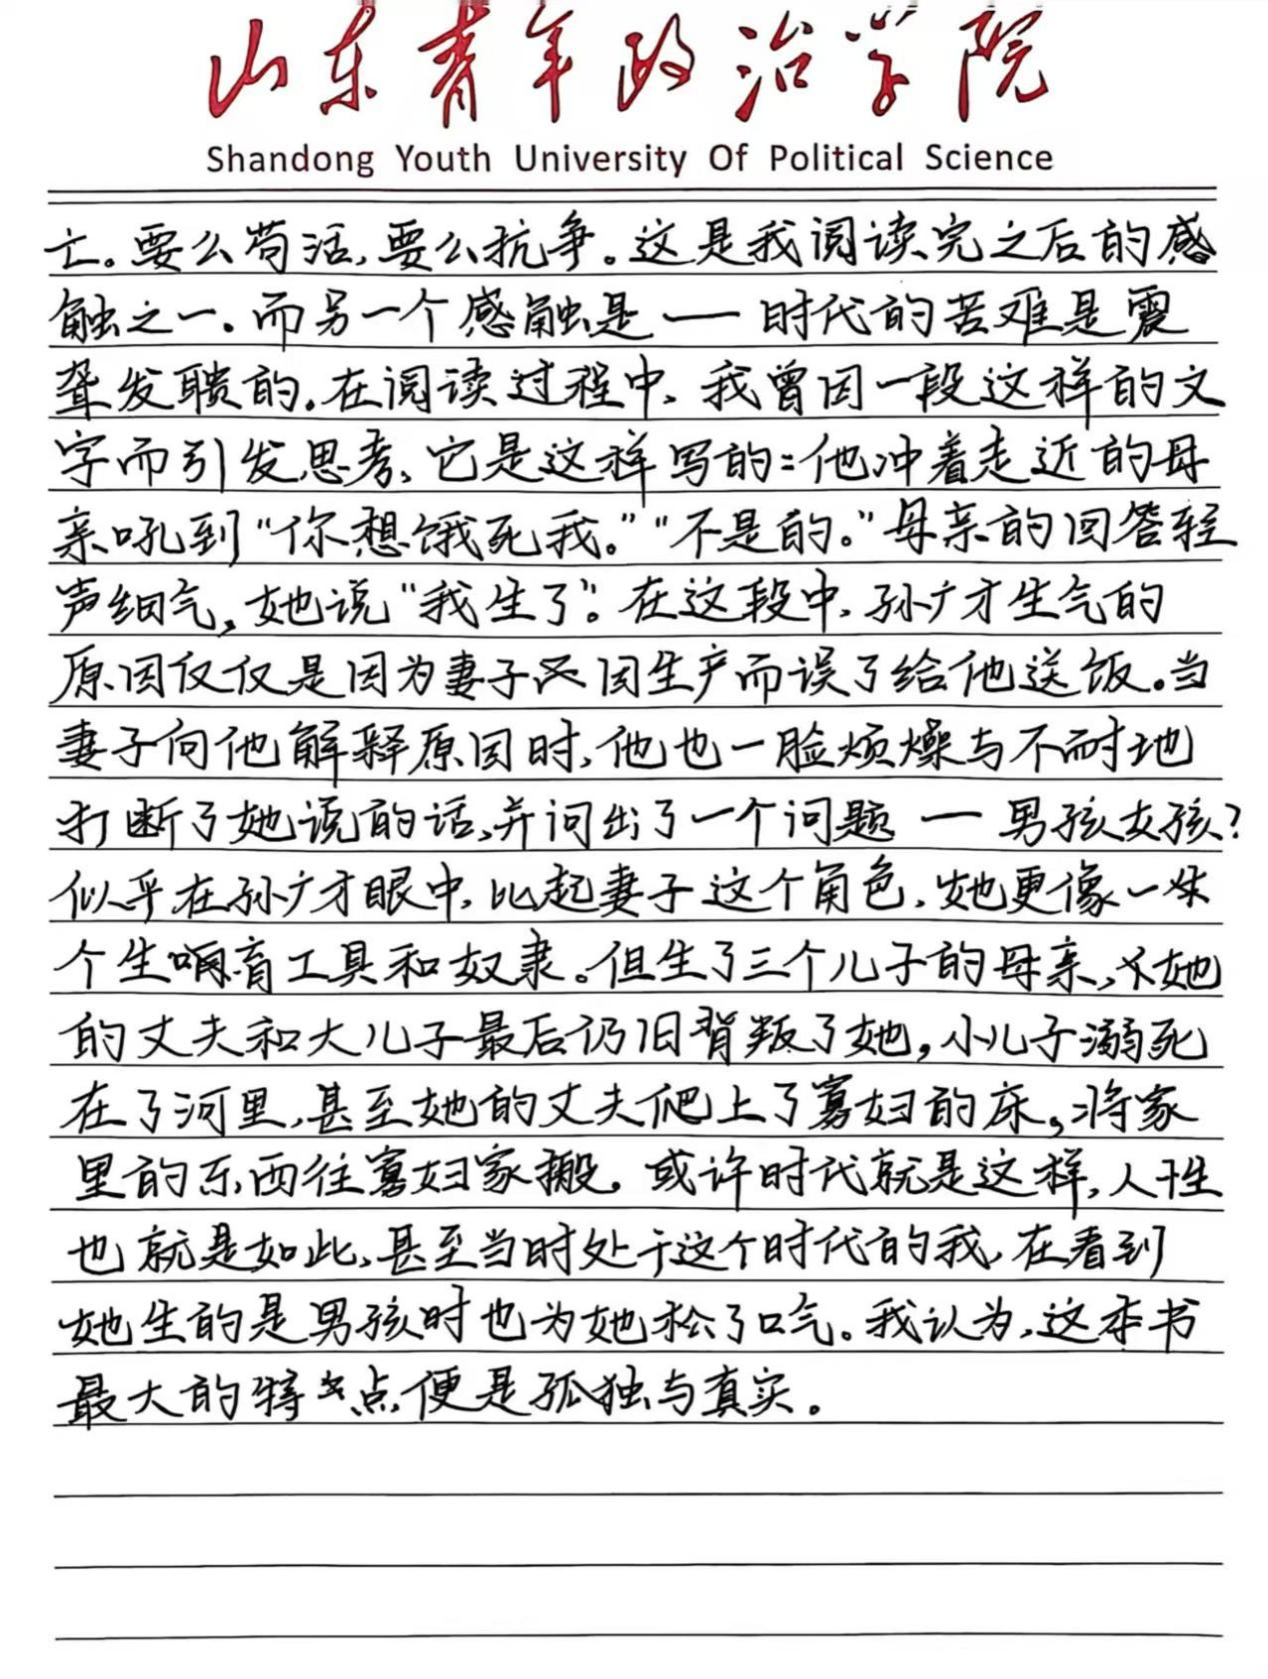 山东青年政治学院
Shandong Youth University Of Political Science
亡。要么苟活,要么抗争。这是我阅读完之后的感
触之一。而另一个感触是——时代的苦难是震
聋发聩的。在阅读过程中,我曾因一段这样的文
字而引发思考,它是这样写的:他冲着走近的母
亲吼到“你想饿死我。”“不是的。”母亲的回答轻
声细气,她说“我生了”。在这段中,孙广才生气的
原因仅仅是因为妻子因生产而误了给他送饭。当
妻子向他解释原因时,他也一脸烦燥与不耐地
打断了她说的话,并问出了一个问题——男孩女孩?
似乎在孙广才眼中,比起妻子这个角色,她更像一
个生育工具和奴隶。但生了三个儿子的母亲,她
的丈夫和大儿子最后仍旧背叛了她,小儿子溺死
在了河里,甚至她的丈夫爬上了寡妇的床,将家
里的东西往寡妇家搬。或许时代就是这样,人性
也就是如此,甚至当时处于这个时代的我,在看到
她生的是男孩时也为她松了口气。我认为,这本书
最大的特点便是孤独与真实。